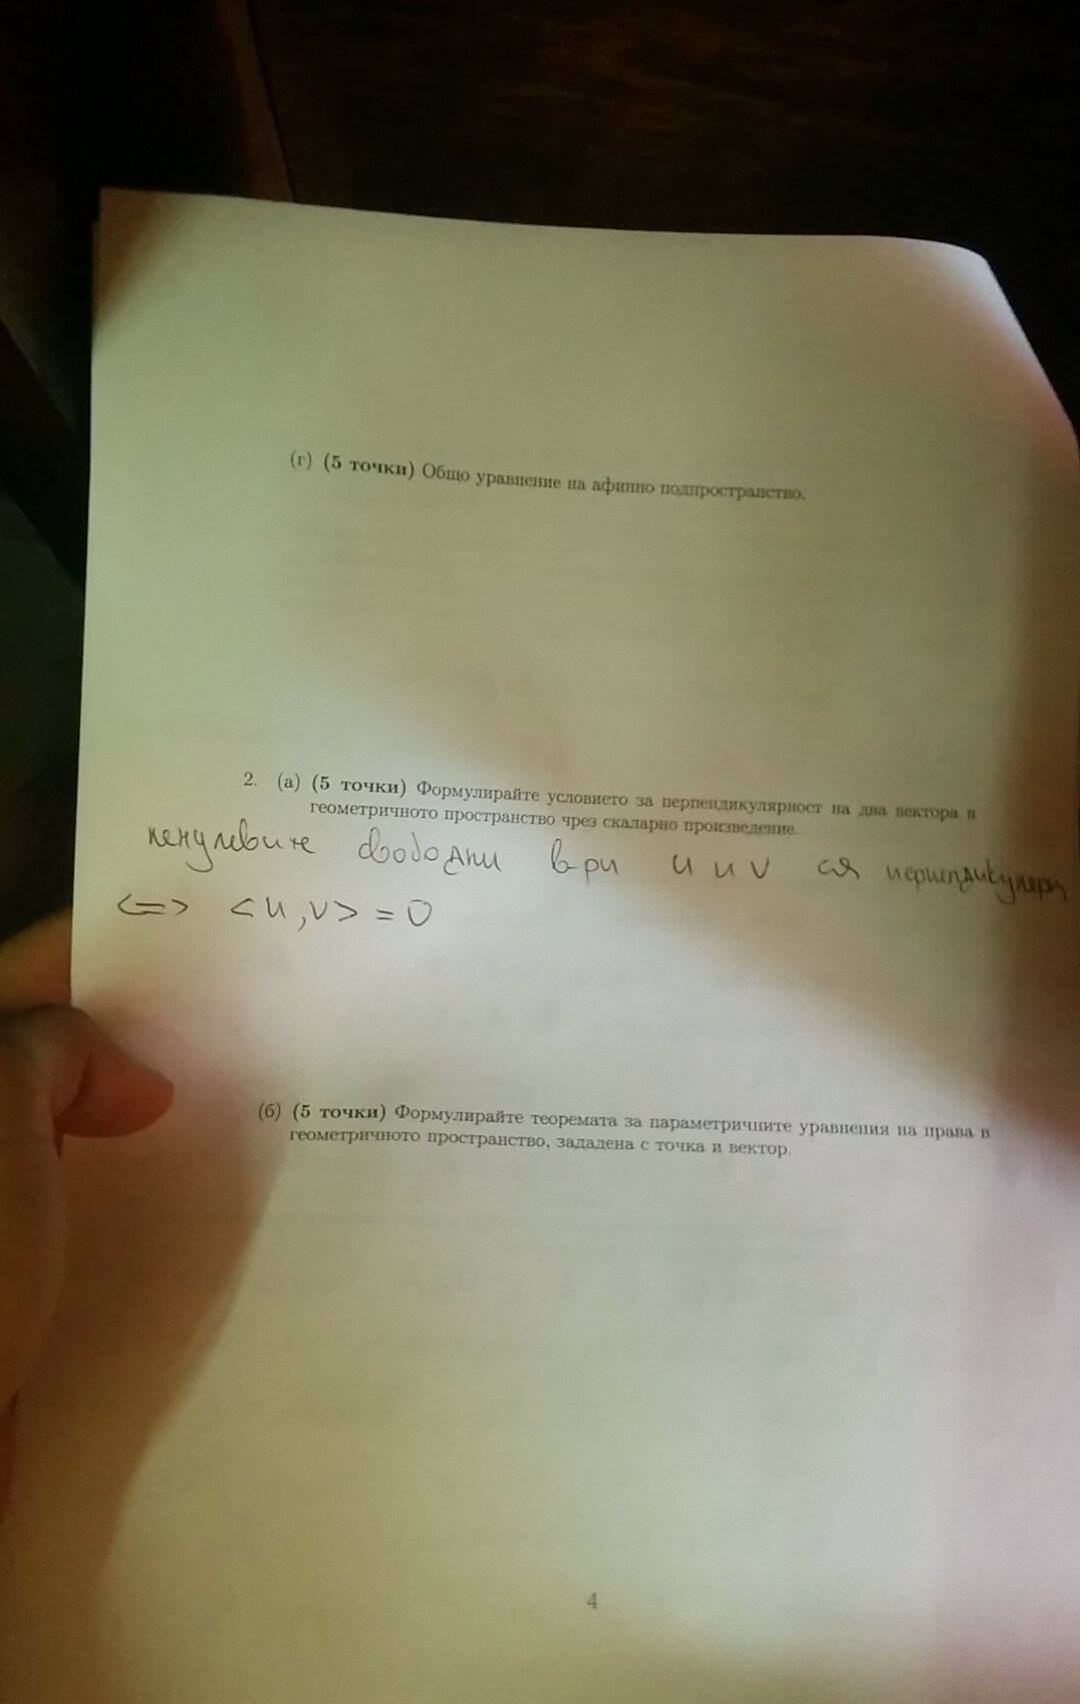 (г) (5 точки) Общо уравнение на афинно подпространство.
2. (а) (5 точки) Формулирайте условието за перпендикулярност на два вектора в
геометричното пространство чрез скаларно произведение.
ненулевите свободни в-ри u и v са перпендикулярни
<=> <u,v> = 0
(б) (5 точки) Формулирайте теоремата за параметричните уравнения на права в
геометричното пространство, зададена с точка и вектор.
4